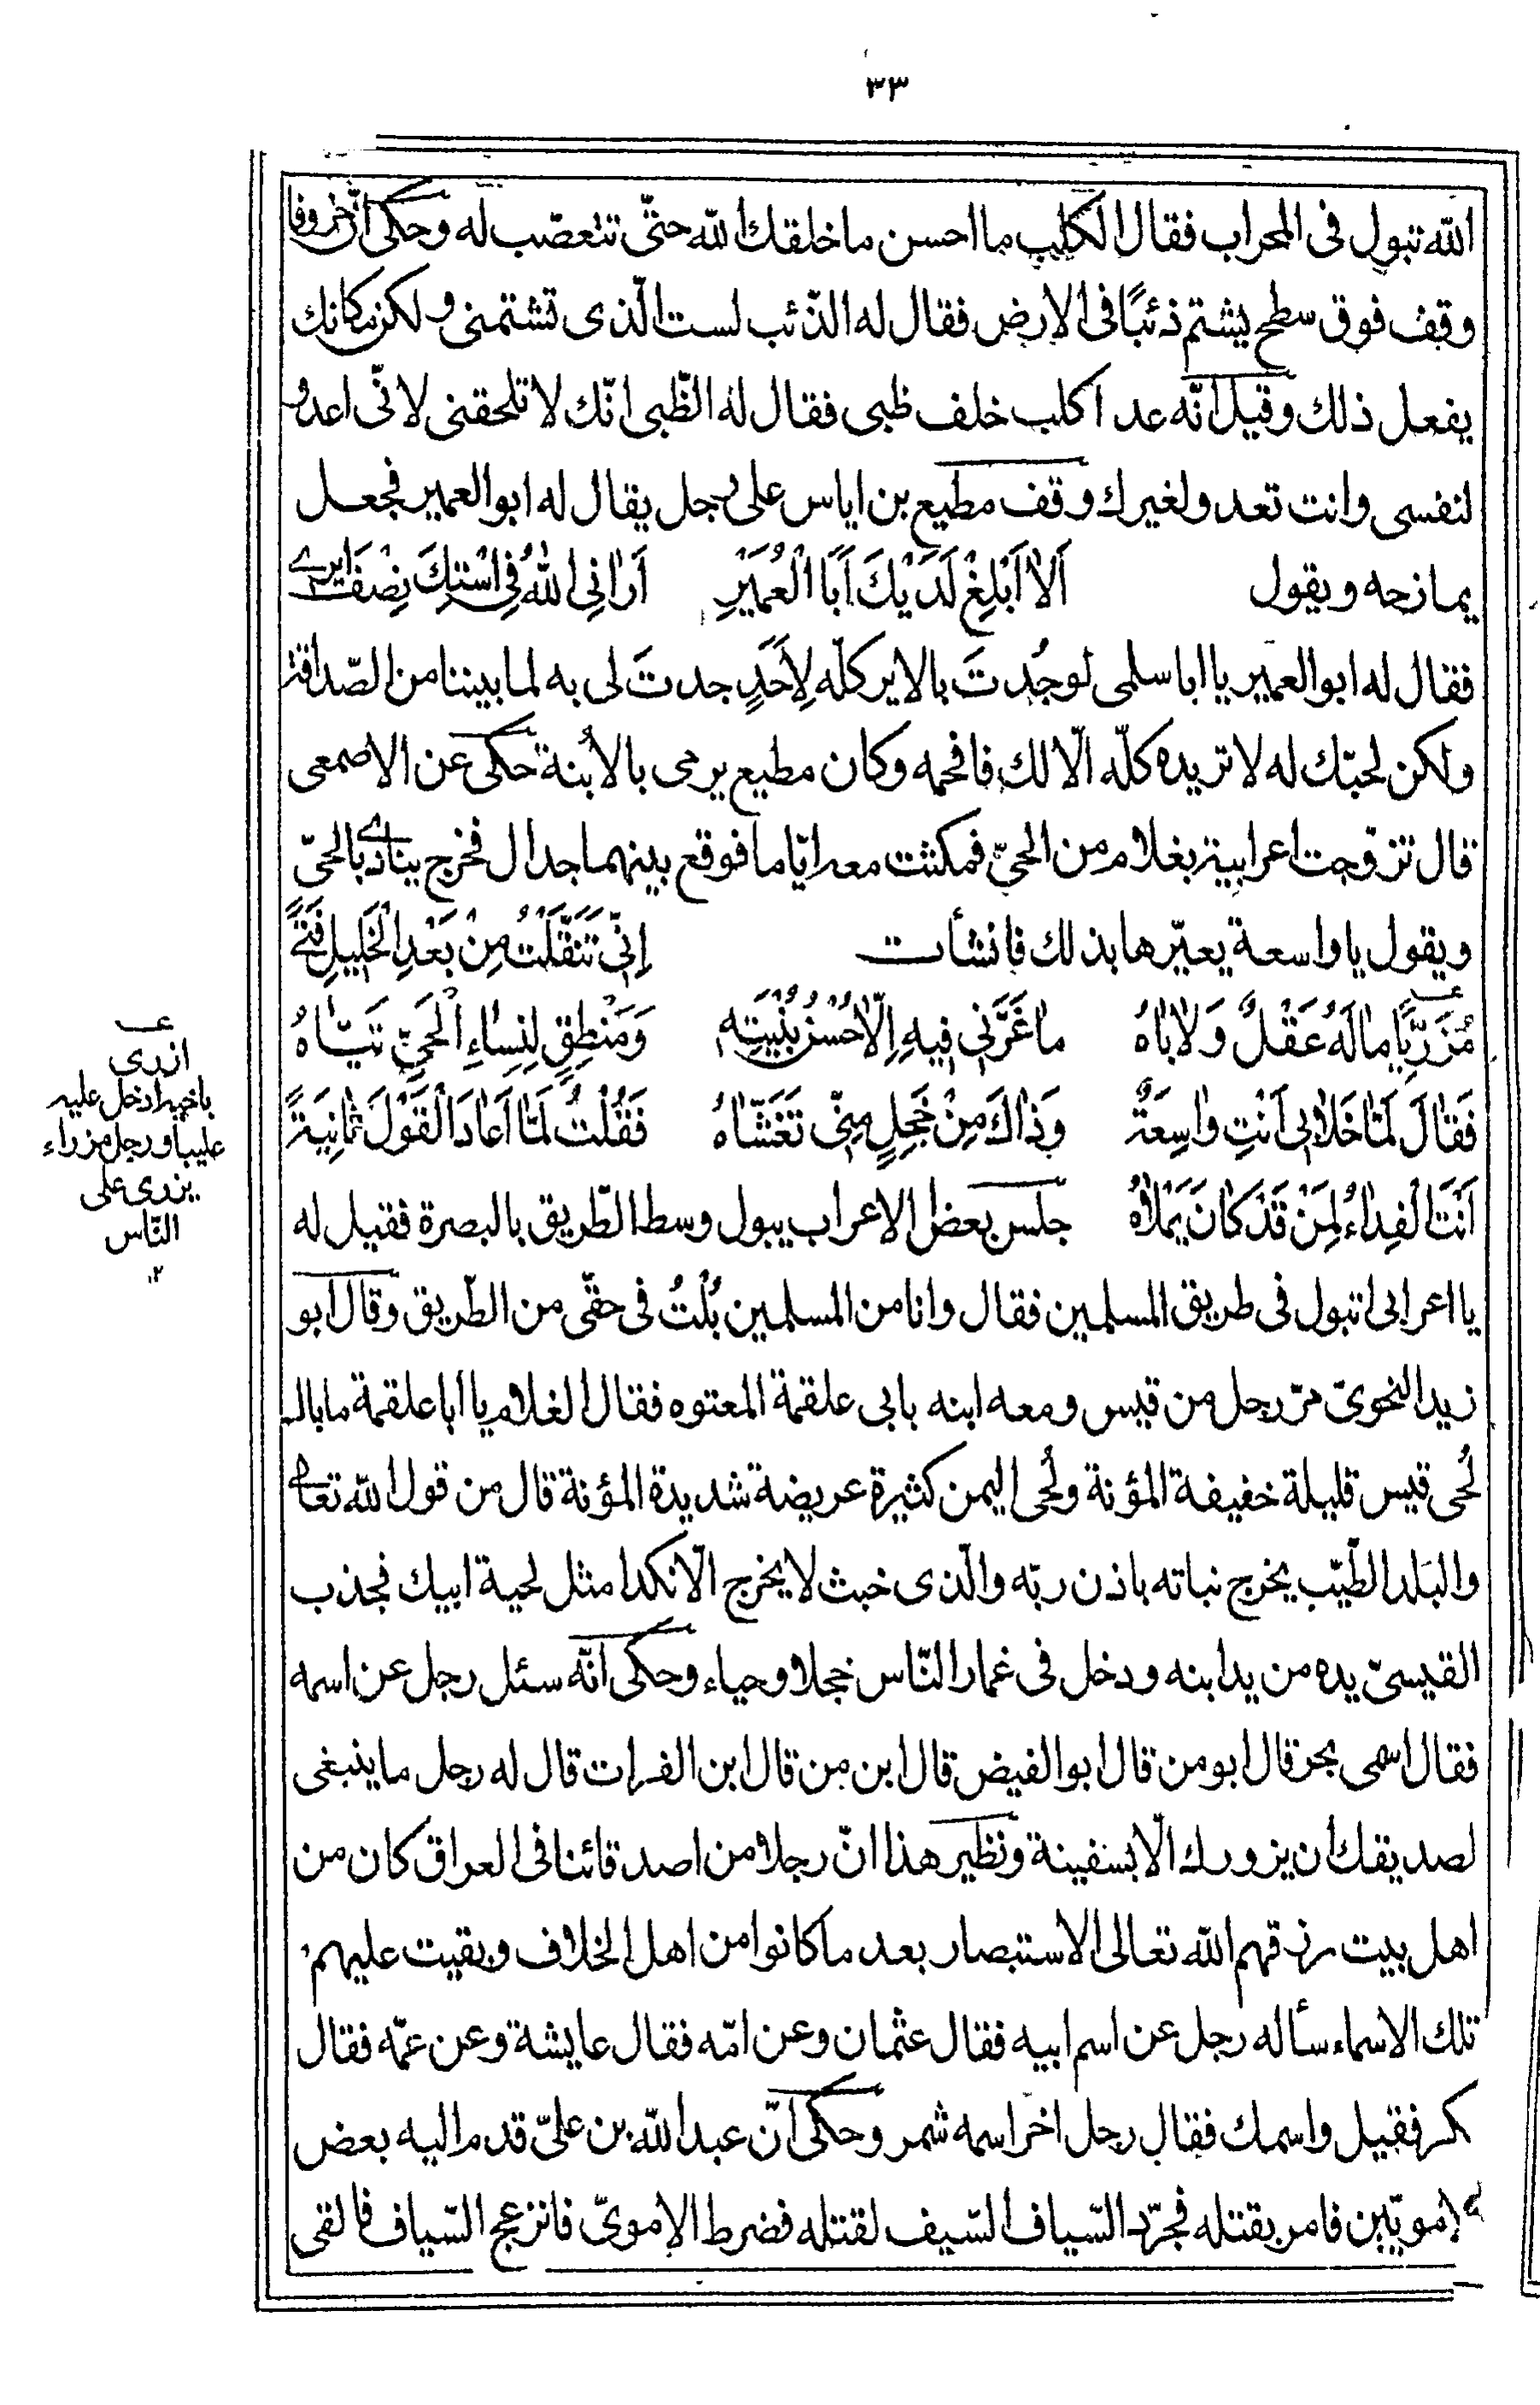 ٣٣
الله تبول فى المحراب فقال الكلب ما احسن ما خلقك الله حتّى تتعصّب له وحكى انّ خروفا
وقف فوق سطح يشتم ذئبًا فى الارض فقال له الذّئب لست الّذى تشتمنى ولكن مكانك
يفعل ذلك وقيل انّه عدا كلب خلف ظبى فقال له الظّبى انّك لا تلحقنى لانّى اعدو
لنفسى وانت تعدو لغيرك وقف مطيع بن اياس على رجل يقال له ابو العمير فجعل
يمازحه ويقول اَلا اَبْلِغْ لَدَيْكَ اَبَا الْعُمَيْرِ اَرٰانِى اللهُ فِى اسْتِكَ نِصْفَ اَيرى
فقال له ابو العمير يا ابا سلمى لو جُدتَ بالاير كلّه لِاَحَدٍ جدتَ لى به لما بيننا من الصّداقة
ولكن لحبّك له لا تريده كلّه الّا لك فافحمه وكان مطيع يرمى بالاُبنة حكى عن الاصمعى
قال تزوّجت اعرابية بغلام من الحىّ فمكثت معه ايّاما فوقع بينهما جدال فخرج ينادى بالحىّ
ويقول يا واسعة يعيّرها بذلك فانشأت اِنّى تَنَقَّلْتُ مِنْ بَعْدِ الْخَلِيلِ فَتًى
مُزَرِّيًا مٰا لَهُ عَقْلٌ وَلٰا بٰاهُ مٰا غَرَّنِى فِيهِ اِلّا حُسْنُ بُنْيَتِهِ وَمَنْطِقٍ لِنِسٰاءِ الْحَىِّ تَيّٰاهُ
فَقٰالَ لَمّٰا خَلٰا بِى اَنْتِ وٰاسِعَةٌ وَذٰاكَ مِنْ خَجِلٍ مِنّى تَغَشّٰاهُ فَقُلْتُ لَمّٰا اَعٰادَ الْقَوْلَ ثٰانِيَةً
اَنْتَ الْفِدٰاءُ لِمَنْ قَدْ كٰانَ يَمْلٰاهُ جلس بعض الاعراب يبول وسط الطّريق بالبصرة فقيل له
يا اعرابى اتبول فى طريق المسلمين فقال وانا من المسلمين بُلْتُ فى حقّى من الطّريق وقال ابو
زيد النحوىّ مرّ رجل من قيس ومعه ابنه بابى علقمة المعتوه فقال الغلام يا ابا علقمة ما بال
لُحى قيس قليلة خفيفة المؤنة ولُحى اليمن كثيرة عريضة شديدة المؤنة قال من قول الله تعالى
والبلد الطّيّب يخرج نباته باذن ربّه والّذى خبث لا يخرج الّا نكدا مثل لحية ابيك فجذب
القيسىّ يده من يد ابنه ودخل فى غمار النّاس خجلا وحياء وحكى انّه سئل رجل عن اسمه
فقال اسمى بحر قال ابو من قال ابو الفيض قال ابن من قال ابن الفرات قال له رجل ما ينبغى
لصديقك ان يزورك الّا بسفينة ونظير هذا انّ رجلا من اصدقائنا فى العراق كان من
اهل بيت رزقهم الله تعالى الاستبصار بعد ما كانوا من اهل الخلاف وبقيت عليهم
تلك الاسماء سأله رجل عن اسم ابيه فقال عثمان وعن امّه فقال عايشة وعن عمّه فقال
بكر فقيل واسمك فقال رجل اخر اسمه شمر وحكى انّ عبد الله بن علىّ قدم اليه بعض
الامويّين فامر بقتله فجرّد السّياف السّيف لقتله فضرط الاموىّ فانزعج السّياف فالقى
ازرى
باخيه ادخل عليه
عليبا ورجل مزراء
يزرى على
النّاس
١٢